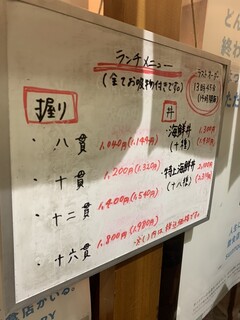 ランチメニュー
(全てお吸物付きです。)
ラストオーダー
13時45分
握り
丼
・八貫 1,040円(1,144円)
・十貫 1,200円(1,320円)
・十二貫 1,400円(1,540円)
・十六貫 1,800円(1,980円)
・海鮮丼
(十種)
・特上海鮮丼
(十八種)
※( )内は税込価格です。